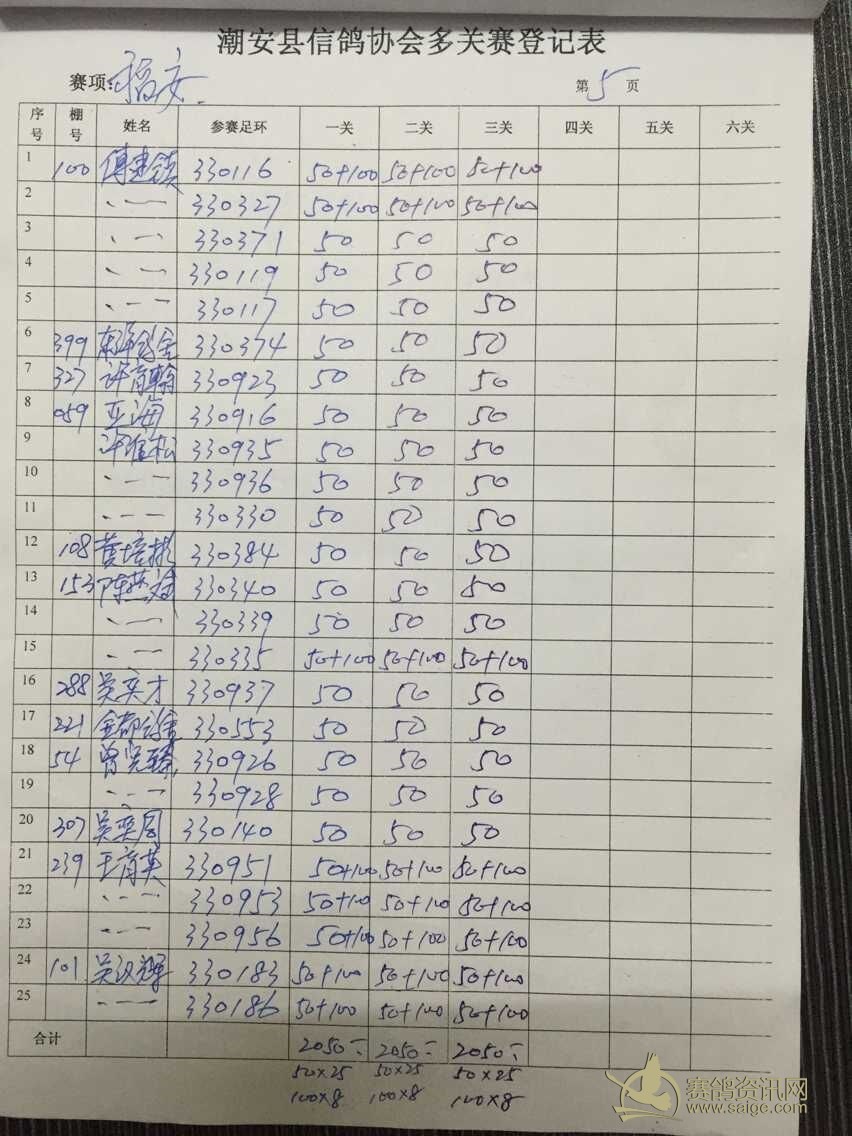 潮安县信鸽协会多关赛登记表
赛项: 福安 第5页
序号 棚号 姓名 参赛足环 一关 二关 三关 四关 五关 六关
1 100 傅建镇 330116 50+100 50+100 50+100
2 、一一 330327 50+100 50+100 50+100
3 、一一 330371 50 50 50
4 、一一 330119 50 50 50
5 、一一 330117 50 50 50
6 399 330374 50 50 50
7 327 许育翰 330923 50 50 50
8 059 亚海 330916 50 50 50
9 许维松 330935 50 50 50
10 、一一 330936 50 50 50
11 、一一 330330 50 50 50
12 108 黄培彬 330384 50 50 50
13 153 330340 50 50 50
14 、一一 330339 50 50 50
15 、一一 330335 50+100 50+100 50+100
16 288 吴奕才 330937 50 50 50
17 221 金都鸽舍 330553 50 50 50
18 54 330926 50 50 50
19 、一一 330928 50 50 50
20 307 吴奕周 330140 50 50 50
21 239 王育英 330951 50+100 50+100 50+100
22 、一一 330953 50+100 50+100 50+100
23 、一一 330956 50+100 50+100 50+100
24 101 吴汉辉 330183 50+100 50+100 50+100
25 、一一 330186 50+100 50+100 50+100
合计 2050 2050 2050
50×25 50×25 50×25
100×8 100×8 100×8
赛鸽资讯网
www.saige.com